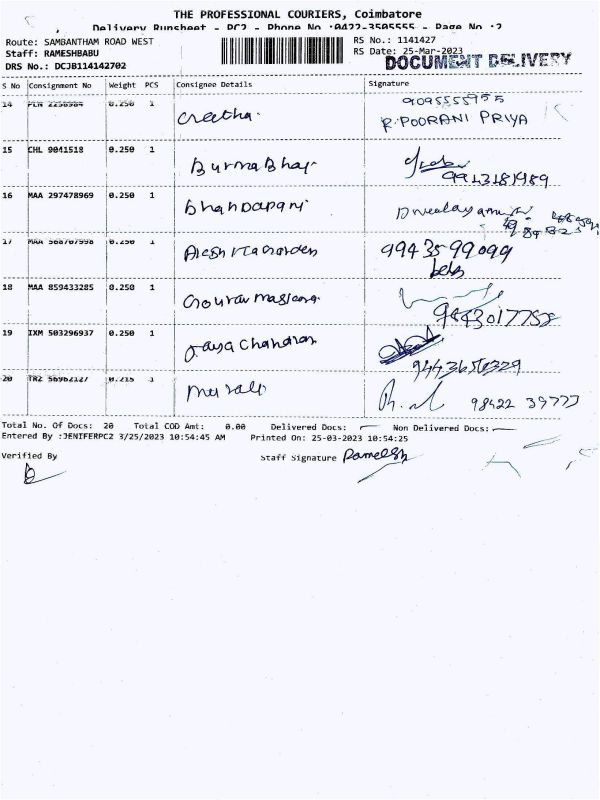 THE PROFESSIONAL COURIERS, Coimbatore
Delivery Runsheet - PC2 - Phone No :0422-3505555 - Page No :2
Route: SAMBANTHAM ROAD WEST
RS No.: 1141427
Staff: RAMESHBABU
RS Date: 25-Mar-2023
DRS No.: DCJB114142702
DOCUMENT DELIVERY
S No Consignment No Weight PCS Consignee Details Signature
14 PLN 2256984 0.250 1 Geetha. 9095555955
R. POORANI PRIYA
15 CHL 9041518 0.250 1 Burma Bhai
16 MAA 297478969 0.250 1 Dhandapani
17 MAA 568707598 0.250 1 99435 99099
18 MAA 859433285 0.250 1 9843017758
19 IXM 503296937 0.250 1 Jaya Chandran
20 TRZ 56962127 0.215 1 Murali 98422 39777
Total No. Of Docs: 20 Total COD Amt: 0.00 Delivered Docs: Non Delivered Docs:
Entered By :JENIFERPC2 3/25/2023 10:54:45 AM Printed On: 25-03-2023 10:54:25
Verified By Staff Signature Ramesh